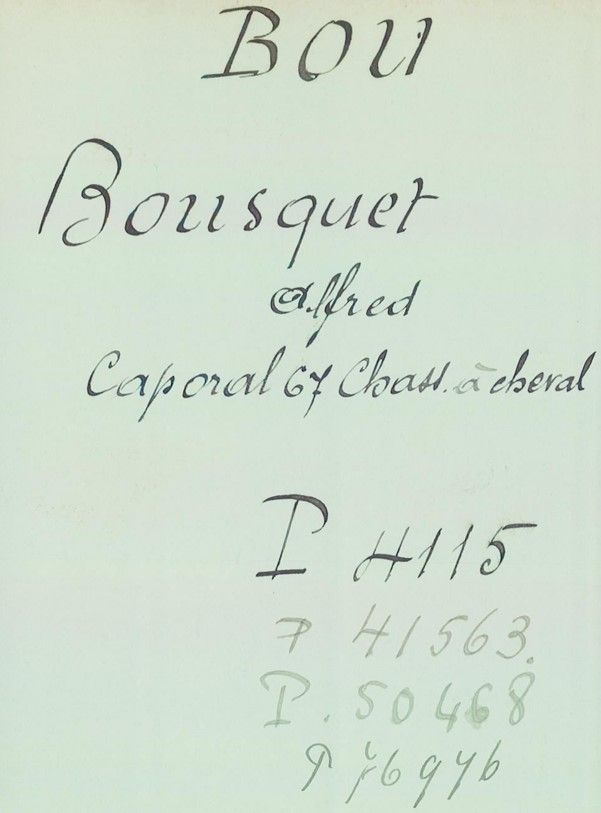 BOU
Bousquet
Alfred
Caporal 67 Chass. à cheval
P 4115
P 41563.
P. 50468
P 76976